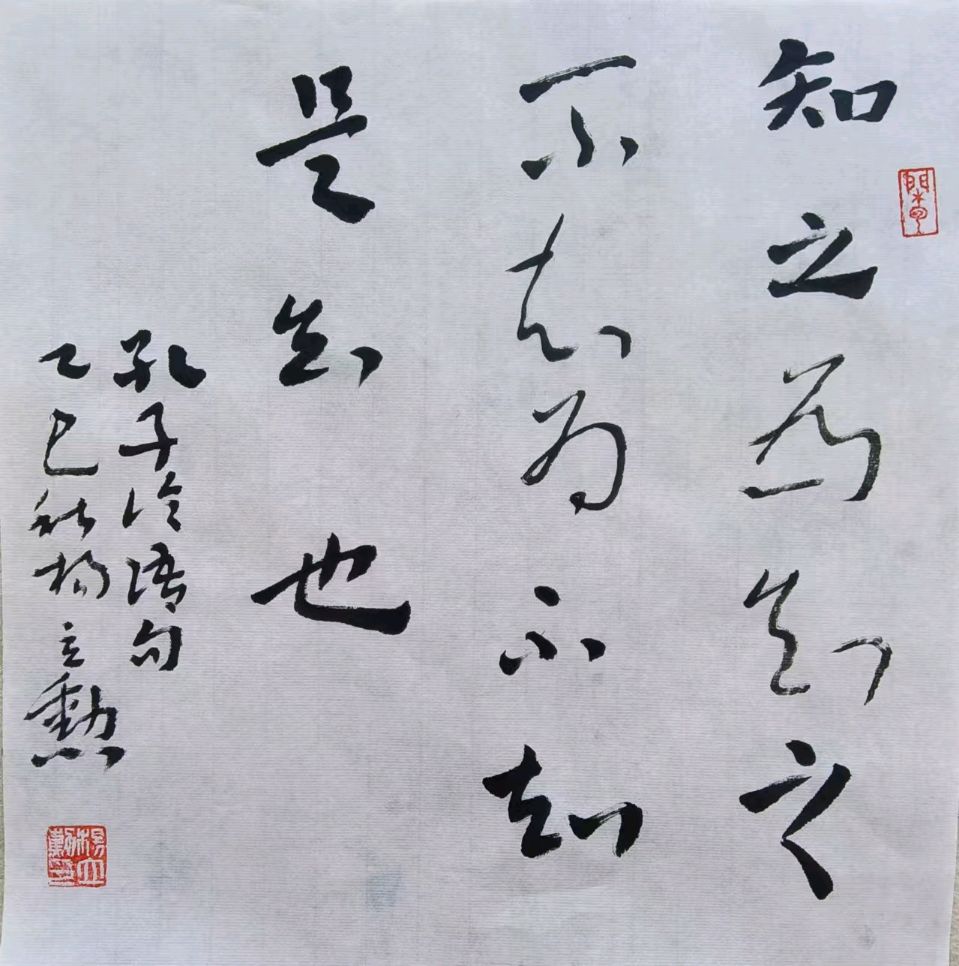 知之為知之
不知為不知
是知也
孔子論語句
乙巳秋楊立勳